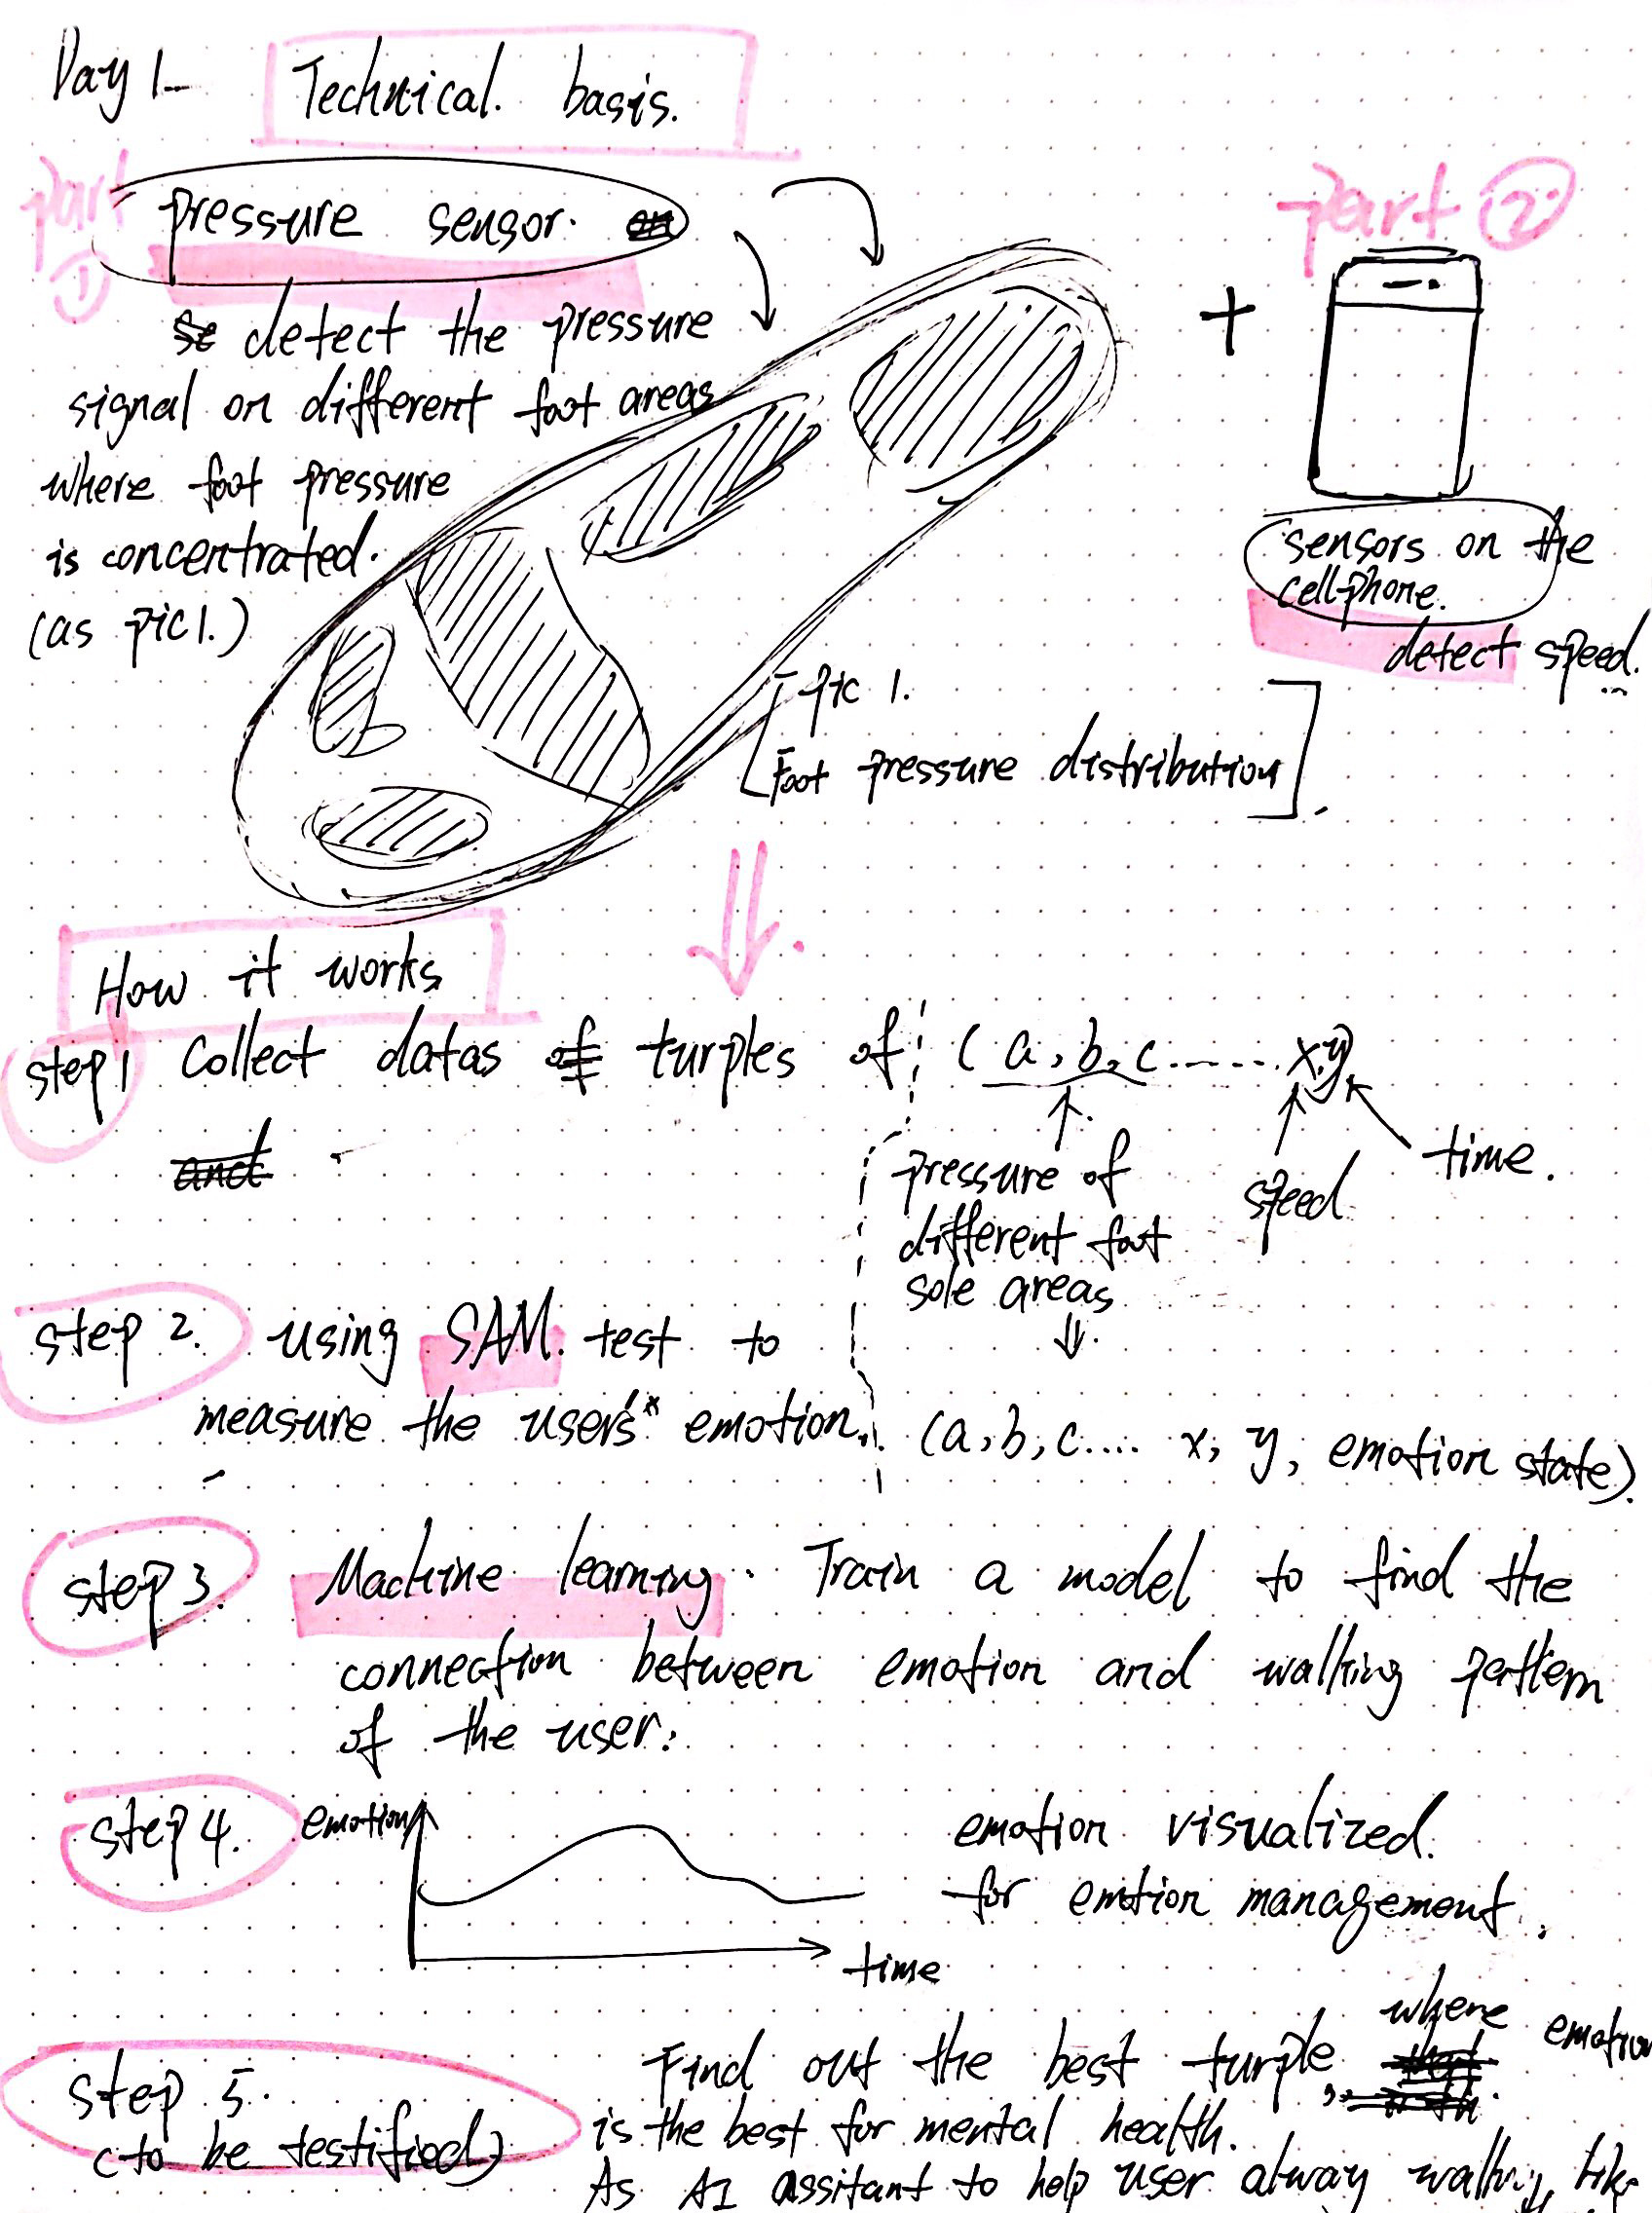 Day 1 Technical. basis.
part ①
pressure sensor.
detect the pressure
signal on different foot areas
where foot pressure
is concentrated.
(as pic 1.)
part ②
+
sensors on the
cellphone.
detect speed.
pic 1.
Foot pressure distribution
How it works
step 1 Collect datas of turples of (a, b, c ...... x, y)
and
pressure of
different foot
sole areas
speed
time.
step 2. using SAM. test to
measure the user's* emotion.
(a, b, c.... x, y, emotion state).
step 3. Machine learning. Train a model to find the
connection between emotion and walking pattern
of the user.
step 4. emotion
time
emotion visualized.
for emotion management.
step 5.
(to be testified)
Find out the best turple, where emotion
is the best for mental health.
As AI assitant to help user alway walking like